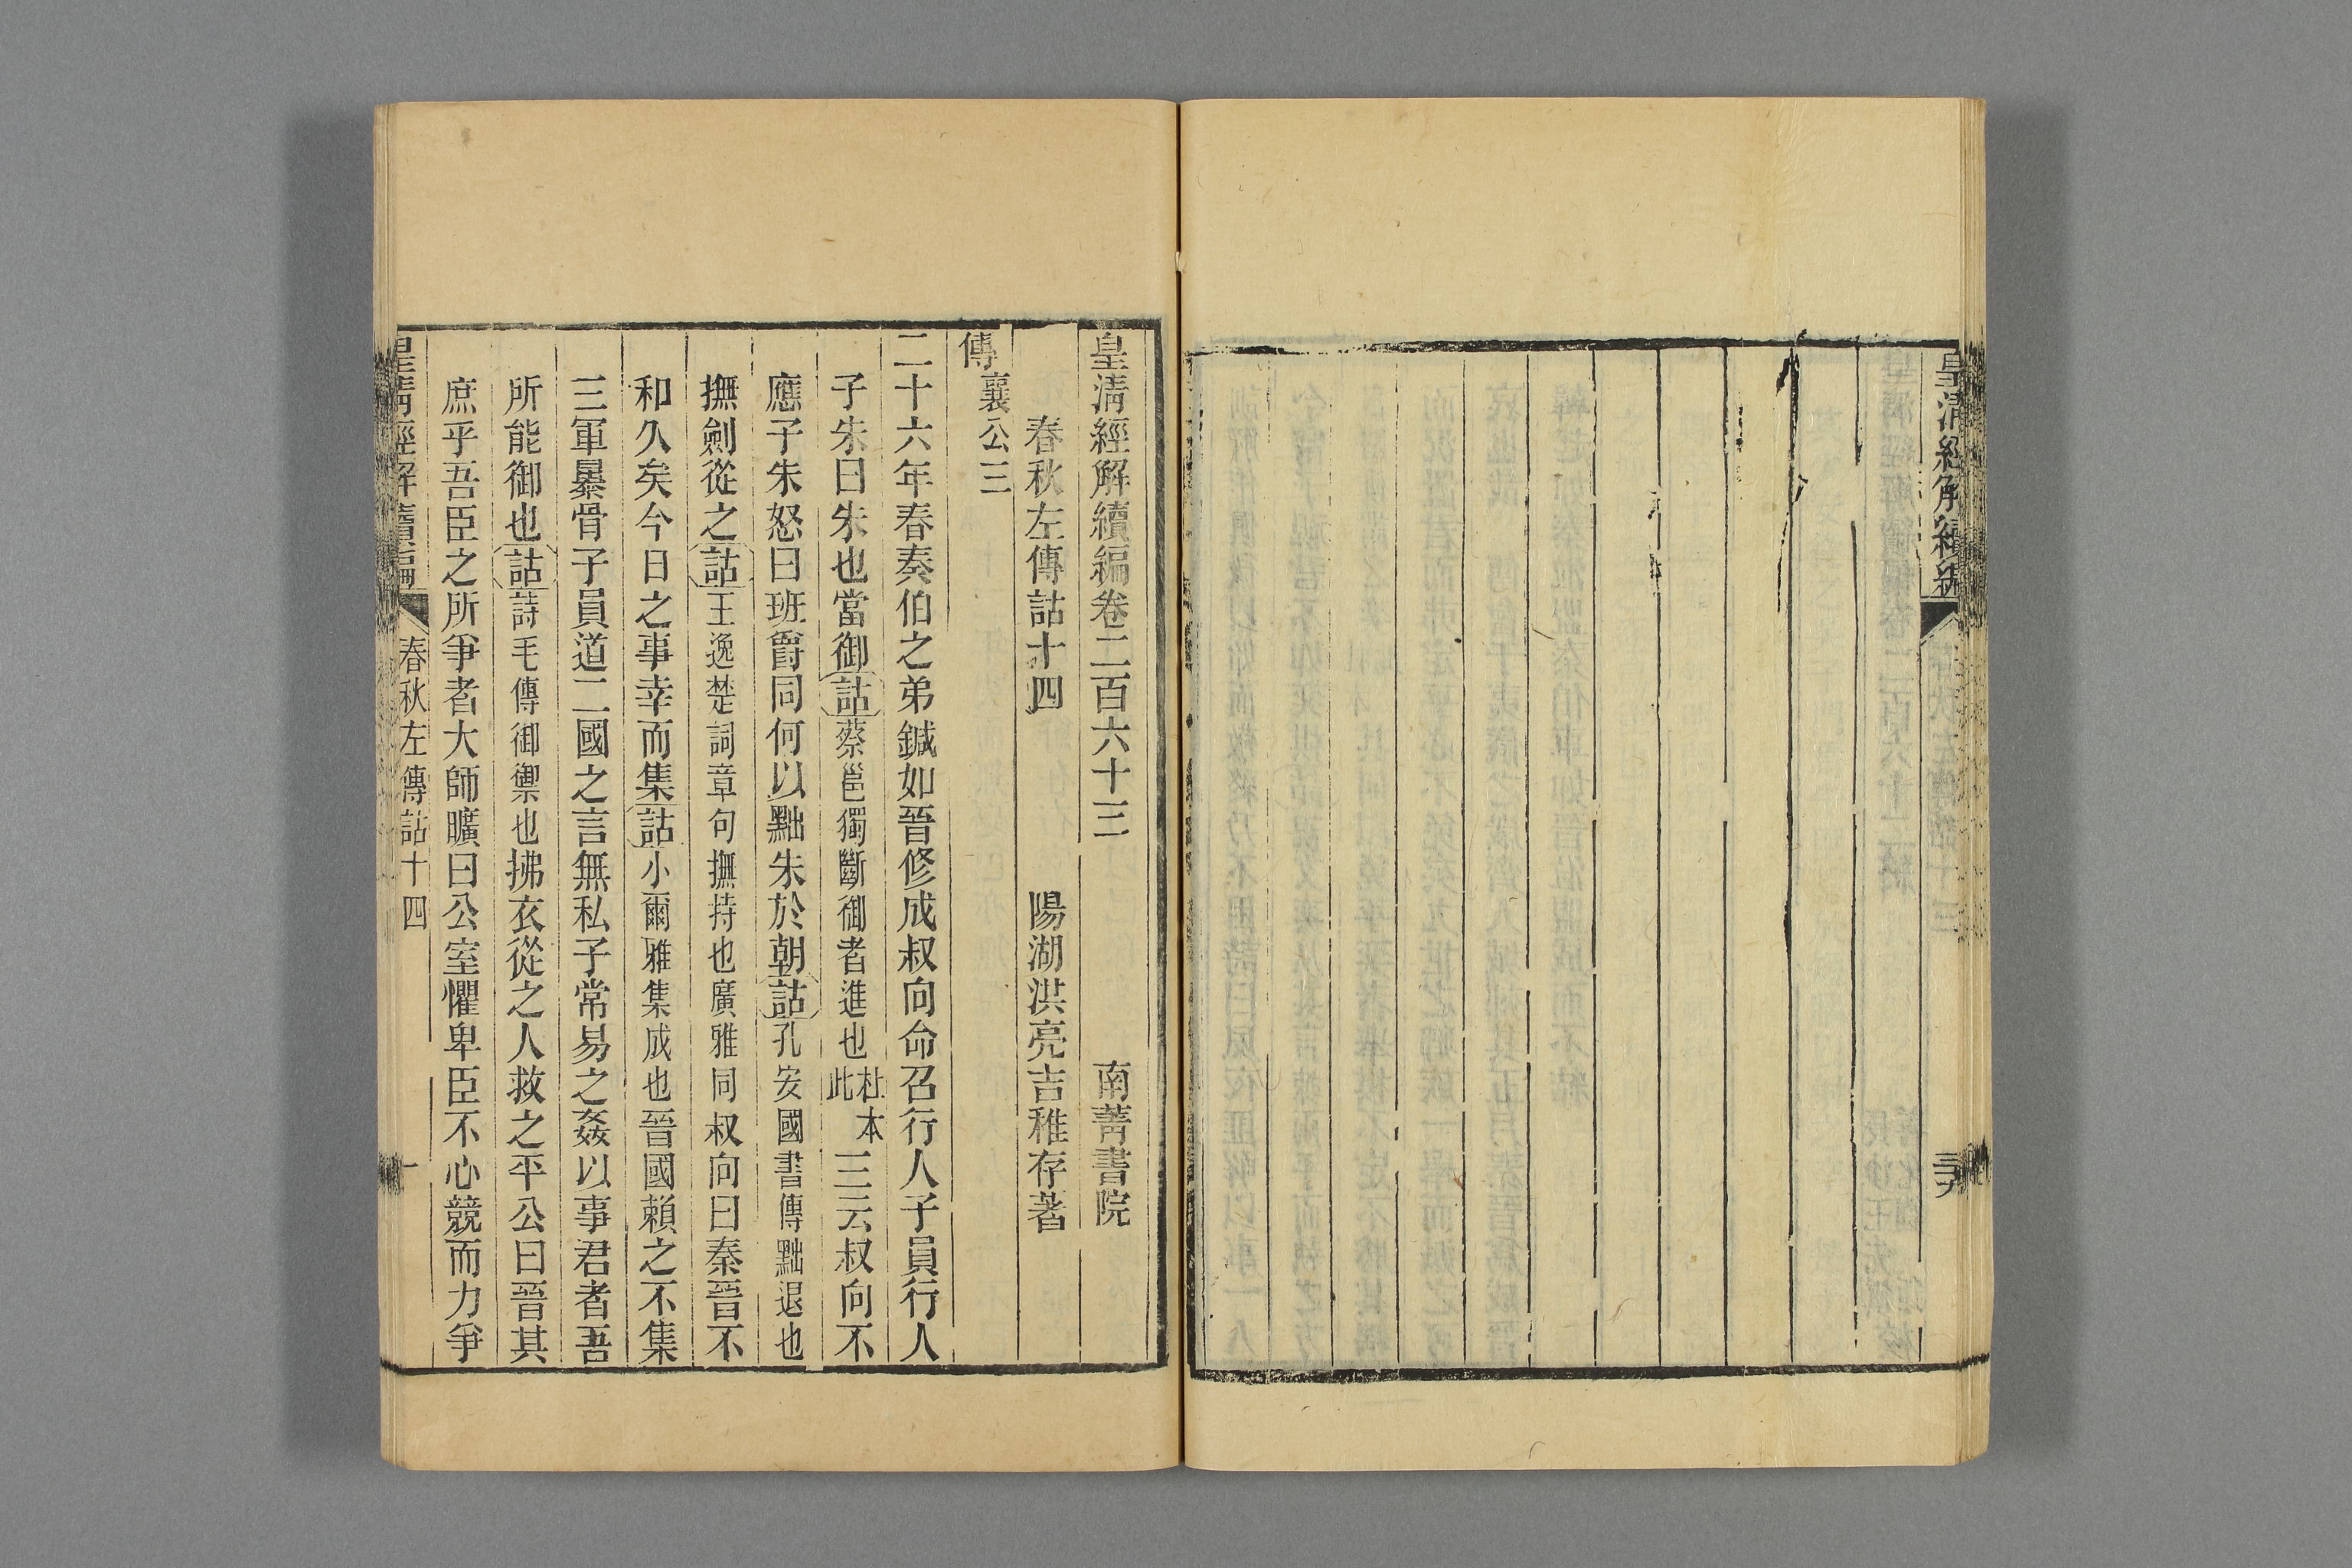 皇清經解續編
三十九
皇清經解續編卷二百六十三　南菁書院
春秋左傳詁十四　陽湖洪亮吉稚存著
傳襄公三
二十六年春秦伯之弟鍼如晉修成叔向命召行人子員行人
子朱曰朱也當御詁蔡邕獨斷御者進也杜本此三云叔向不
應子朱怒曰班爵同何以黜朱於朝詁孔安國書傳黜退也
撫劍從之詁王逸楚詞章句撫持也廣雅同叔向曰秦晉不
和久矣今日之事幸而集詁小爾雅集成也晉國賴之不集
三軍暴骨子員道二國之言無私子常易之姦以事君者吾
所能御也詁詩毛傳御禦也拂衣從之人救之平公曰晉其
庶乎吾臣之所爭者大師曠曰公室懼卑臣不心競而力爭
皇清經解續編　春秋左傳詁十四　一